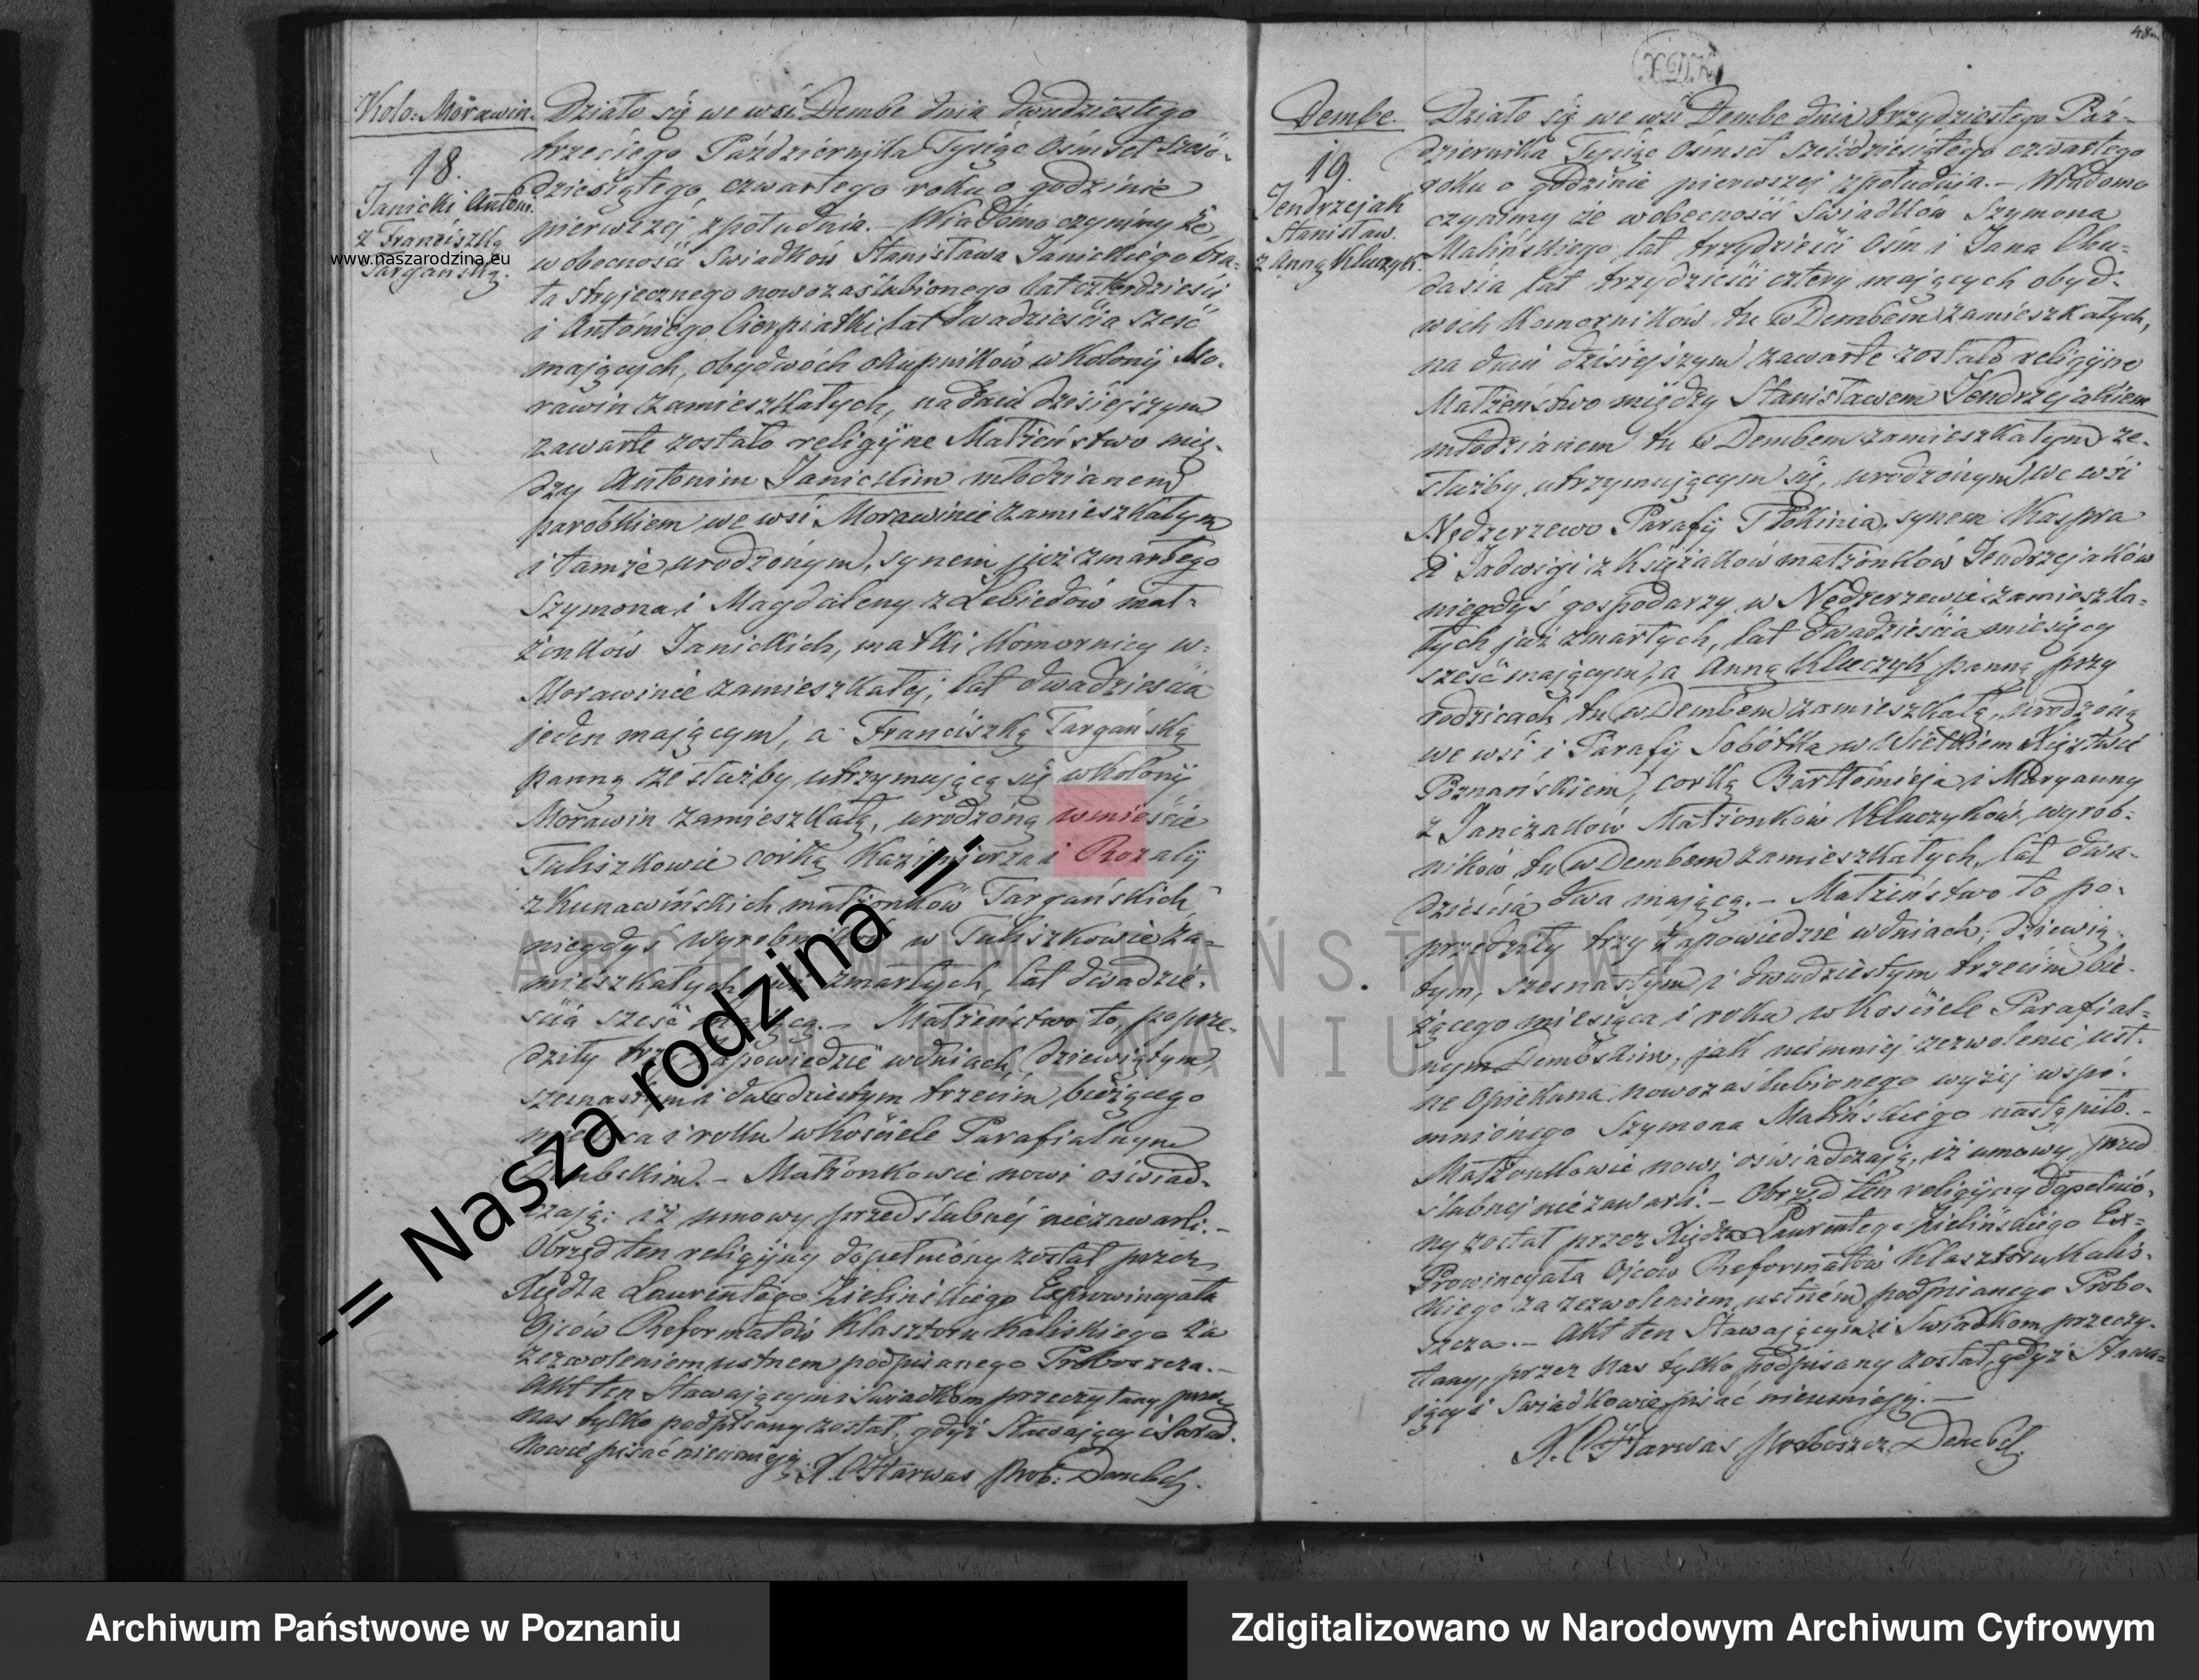 Kolo: Morawin.
18.
Janicki Antoni.
z Franciszką
Targańską.
www.naszarodzina.eu
Działo się we wsi Dembe dnia dwudziestego
trzeciego Października Tysiąc Ośmset sześć-
dziesiątego czwartego roku o godzinie
pierwszej z południa. – Wiadomo czynimy że
w obecności Świadków Stanisława Janickiego bra-
ta stryjecznego nowozaślubionego lat czterdzieści
i Antoniego Cierpiatki lat dwadzieścia sześć
mających, obydwóch okupników w Kolonij Mo-
rawin zamieszkałych, na dniu dzisiejszym
zawarte zostało religijne Małżeństwo mię-
dzy Antonim Janickim młodzianem
parobkiem we wsi Morawinie zamieszkałym
i tamże urodzonym, synem już zmarłego
Szymona i Magdaleny z Lebiedów mał-
żonków Janickich, matki komornicy w-
Morawinie zamieszkałej, lat dwadzieścia
jeden mającym, a Franciszką Targańską
panną ze służby utrzymującą się w Kolonij
Morawin zamieszkałą, urodzoną w mieście
Tuliszkowie córką Kazimierza i Rozalij
z Kunawińskich małżonków Targańskich
niegdyś wyrobników w Tuliszkowie za-
mieszkałych już zmarłych, lat dwadzie-
ścia sześć mającą. – Małżeństwo to poprze-
dziły trzy zapowiedzie w dniach dziewiątym
szesnastym i dwudziestym trzecim bieżącego
miesiąca i roku w kościele Parafialnym
Dembskim. – Małżonkowie nowi oświad-
czają: iż umowy przedślubnéj niezawarli. –
Obrzęd ten religijny dopełniony został przez
Xiędza Laurentego Zielińskiego Exprowincyała
Ojców Reformatów Klasztoru Kaliskiego za
zezwoleniem ustnem podpisanego Proboszcza. –
Akt ten Stawającym i Świadkom przeczytany przez
nas tylko podpisany został, gdyż Stawający i Świad-
kowie pisać nieumieją.
X. Harwas Prob: Dembski.
48
X.D.K.
Dembe.
19.
Jendrzejak
Stanisław.
z Anną Kluczyk.
Działo się we wsi Dembe dnia trzydziestego Paź-
dziernika Tysiąc Ośmset sześćdziesiątego czwartego
roku o godzinie pierwszej z południa. – Wiadomo
czynimy że w obecności Świadków Szymona
Malińskiego lat trzydzieści ośm i Jana Chu-
dasia lat trzydzieści cztery mających obyd-
wóch komorników tu w Dembem zamieszkałych,
na dniu dzisiejszym zawarte zostało religijne
Małżeństwo między Stanisławem Jendrzejakiem
młodzianem tu w Dembem zamieszkałym ze-
służby utrzymującym się, urodzonym we wsi
Nędzerzewo Parafij Tłokinia, synem Kaspra
i Jadwigi z Księżaków małżonków Jendrzejaków
niegdyś gospodarzy w Nędzerzewie zamieszka-
łych już zmarłych, lat dwadzieścia miesięcy
sześć mającym, a Anną Kluczyk panną przy
rodzicach tu w Dembem zamieszkałą, urodzoną
we wsi i Parafij Sobótka w Wielkiem Xięztwie
Poznańskiem, córką Bartłomieja i Maryanny
z Janczaków Małżonków Kluczyków, wyrob-
ników tu w Dembem zamieszkałych, lat dwa-
dzieścia dwa mającą. – Małżeństwo to po-
przedziły trzy zapowiedzie w dniach, dziewią-
tym, szesnastym i dwudziestym trzecim bie-
żącego miesiąca i roku w kościele Parafial-
nym Dembskim, jak niemniej zezwolenie ust-
ne Opiekuna nowozaślubionego wyżej wspo-
mnionego Szymona Malińskiego nastąpiło. –
Małżonkowie nowi oświadczają, iż umowy przed
ślubnej niezawarli. – Obrzęd ten religijny dopełnio-
ny został przez Xiędza Laurentego Zielińskiego Ex-
Prowincyała Ojców Reformatów Klasztoru Kalis-
kiego za zezwoleniem ustném podpisanego Probo-
szcza. – Akt ten Stawającym i Świadkom przeczy-
tany, przez nas tylko podpisany został, gdyż Stawa-
jący i Świadkowie pisać nieumieją. –
X. Harwas Proboszcz Dembski
ARCHIWUM PAŃSTWOWE
W POZNANIU
-= Nasza rodzina =-
Archiwum Państwowe w Poznaniu
Zdigitalizowano w Narodowym Archiwum Cyfrowym